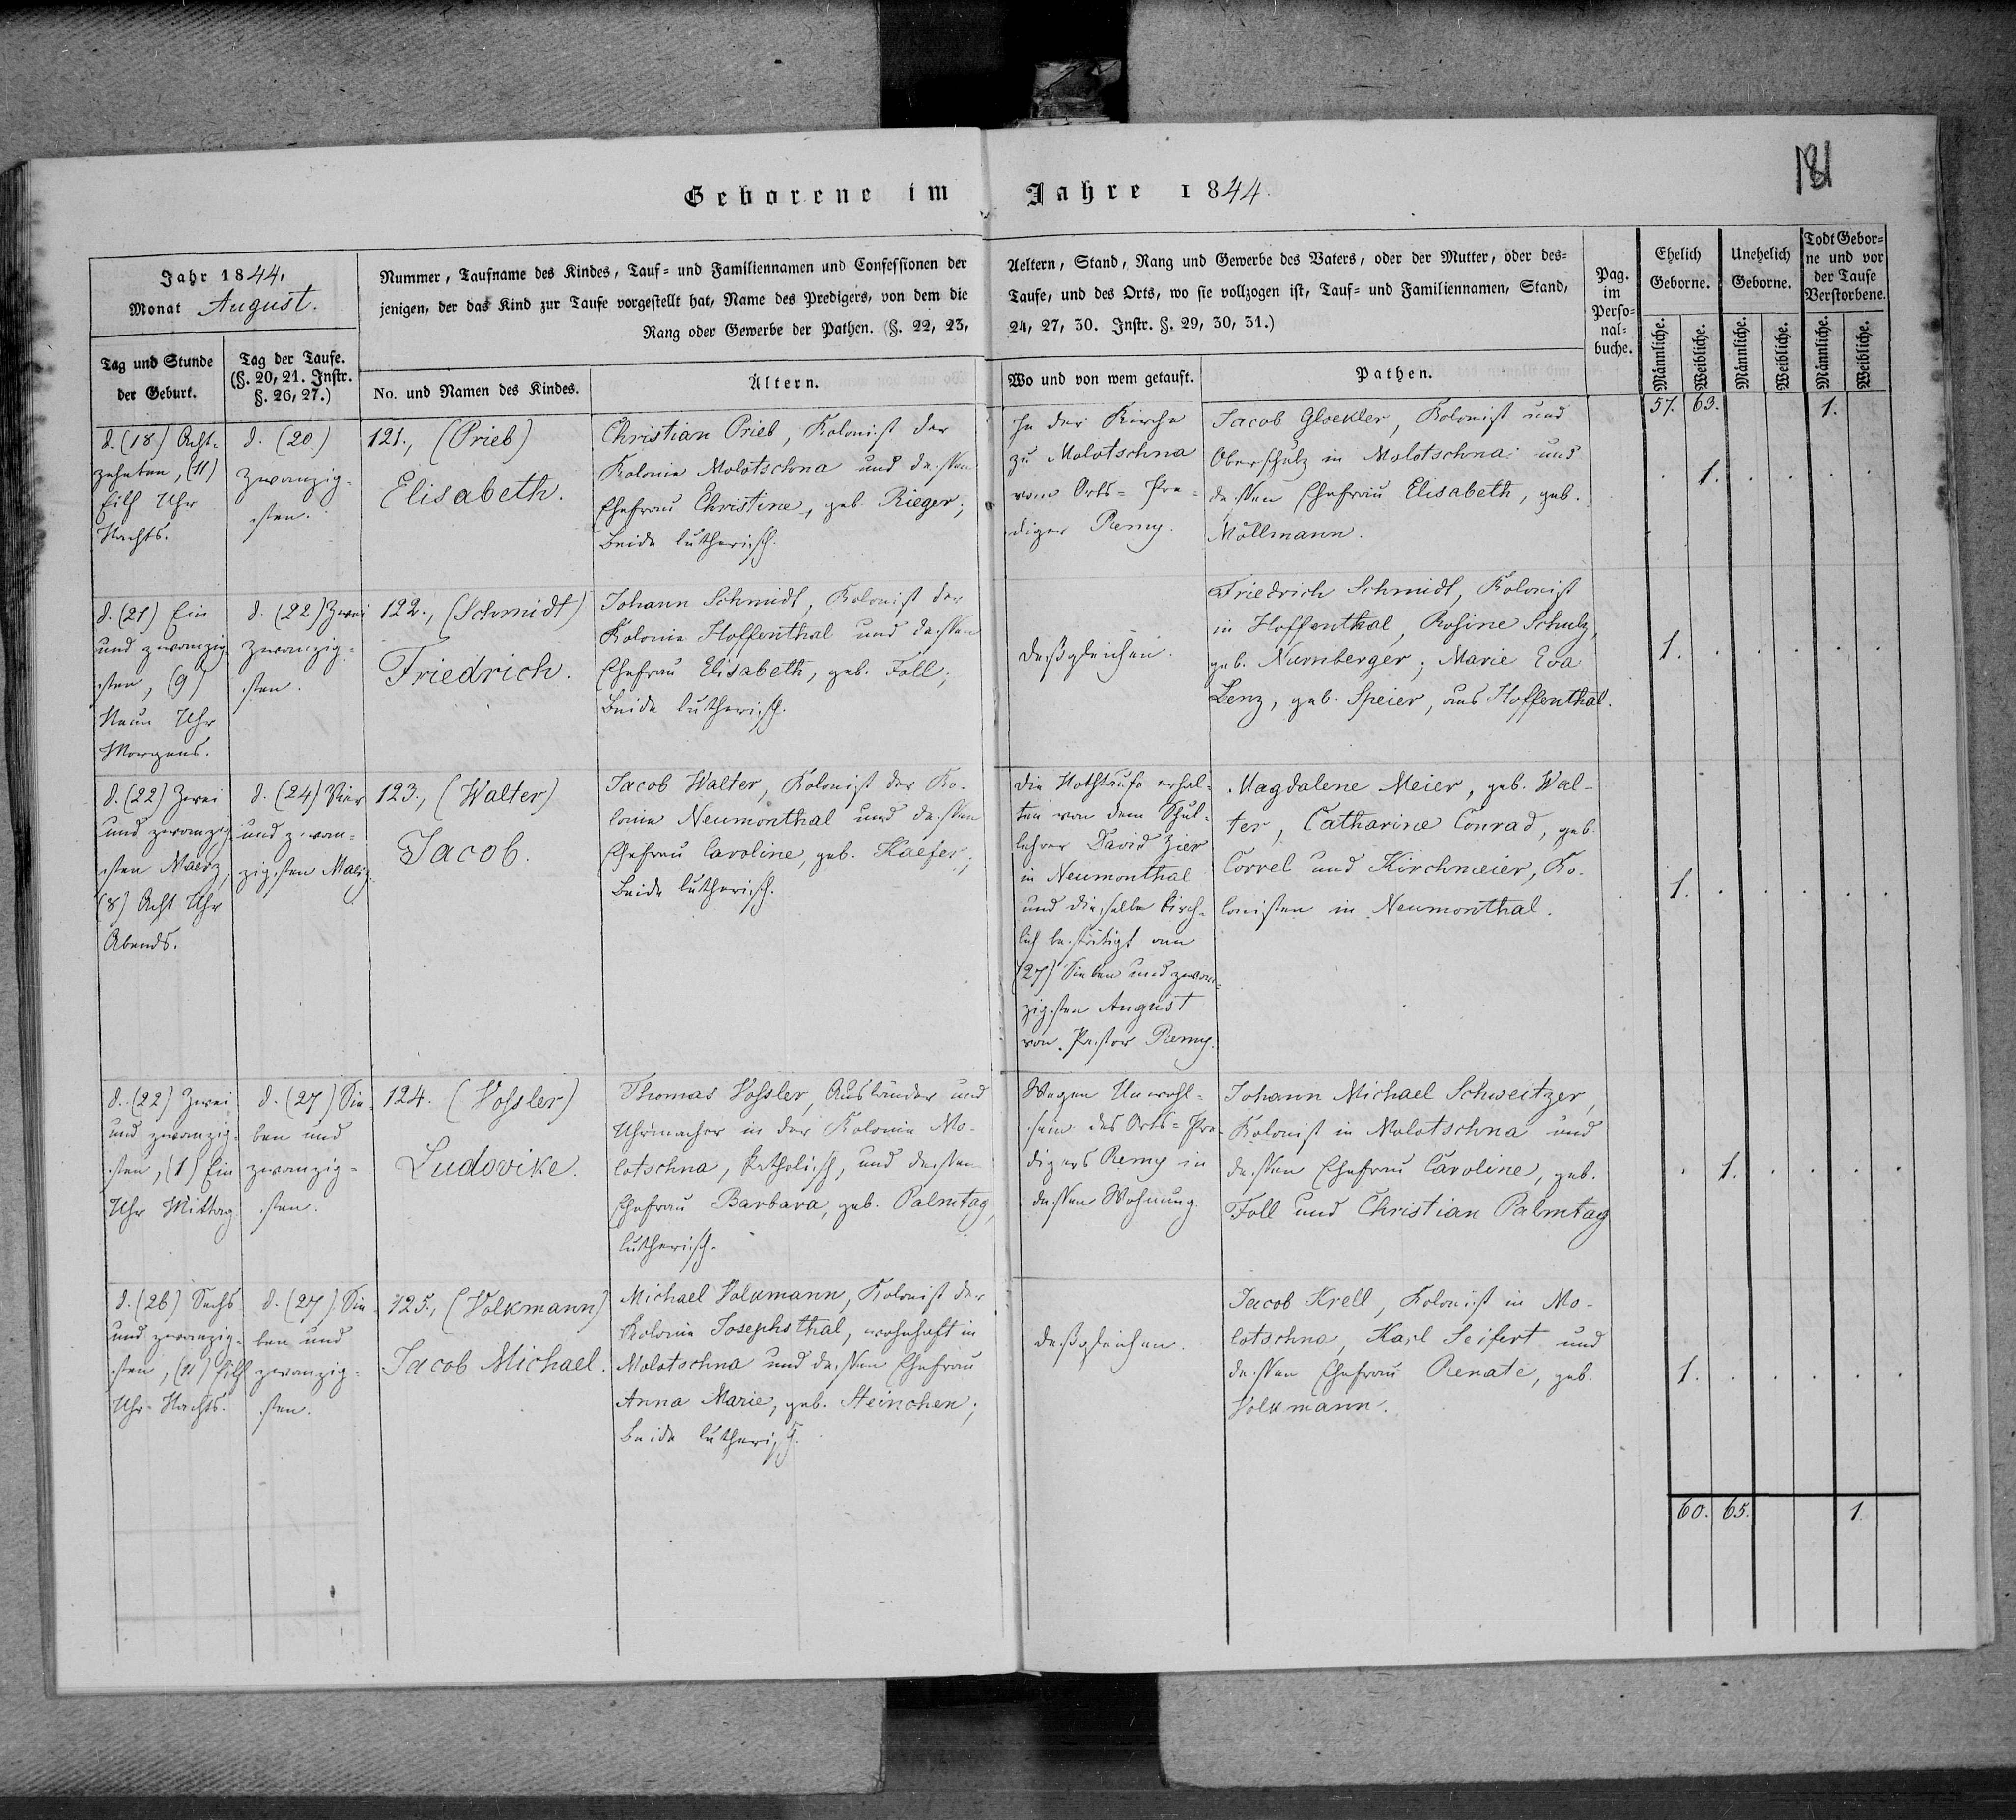 181
Geborene im Jahre 1844.
Jahr 1844.
Monat August.
Nummer, Taufname des Kindes, Tauf- und Familiennamen und Confessionen der
jenigen, der das Kind zur Taufe vorgestellt hat, Name des Predigers, von dem die
Rang oder Gewerbe der Pathen. (§. 22, 23,
Aeltern, Stand, Rang und Gewerbe des Vaters, oder der Mutter, oder des-
Taufe, und des Orts, wo sie vollzogen ist, Tauf- und Familiennamen, Stand,
24, 27, 30. Instr. §. 29, 30, 31.)
Pag.
im
Perso-
nal-
buche.
Ehelich
Geborne.
Unehelich
Geborne.
Todt Gebor-
ne und vor
der Taufe
Verstorbene.
Männliche.
Weibliche.
Männliche.
Weibliche.
Männliche.
Weibliche.
Tag und Stunde
der Geburt.
Tag der Taufe.
(§. 20, 21. Instr.
§. 26, 27.)
No. und Namen des Kindes.
Ältern.
Wo und von wem getauft.
Pathen.
57. 63. 1.
d. (18) Acht-
zehnten, (11)
Eilf Uhr
Nachts.
d. (20)
Zwanzig-
sten.
121., (Prieb)
Elisabeth.
Christian Prieb, Kolonist der
Kolonie Molotschna und dessen
Ehefrau Christine, geb. Rieger;
Beide lutherisch.
In der Kirche
zu Molotschna
vom Orts-Pre-
diger Remy.
Jacob Gloekler, Kolonist und
Oberschulz in Molotschna und
dessen Ehefrau Elisabeth, geb.
Möllmann.
1.
d. (21) Ein
und zwanzig-
sten, (9)
Neun Uhr
Morgens.
d. (22) Zwei
zwanzig-
sten.
122., (Schmidt)
Friedrich.
Johann Schmidt, Kolonist der
Kolonie Hoffenthal und dessen
Ehefrau Elisabeth, geb. Foll;
Beide lutherisch.
Deßgleichen.
Friedrich Schmidt, Kolonist
in Hoffenthal, Rosine Schulz,
geb. Nurnberger; Marie Eva
Lenz, geb. Speier, aus Hoffenthal.
1.
d. (22) Zwei
und zwanzig-
sten Maerz,
(8) Acht Uhr
Abends.
d. (24) Vier
und zwan-
zigsten Maerz.
123., (Walter)
Jacob.
Jacob Walter, Kolonist der Ko-
lonie Neumonthal und dessen
Ehefrau Caroline, geb. Kaefer;
Beide lutherisch.
Die Nothtaufe erhal-
ten von dem Schul-
lehrer David Zier
in Neumonthal
und dieselbe kirch-
lich bestätigt am
(27) Sieben und zwan-
zigsten August
von Pastor Remy.
Magdalene Meier, geb. Wal-
ter, Catharine Conrad, geb.
Correl und Kirchmeier, Ko-
lonisten in Neumonthal.
1.
d. (22) Zwei
und zwanzig-
sten, (1) Ein
Uhr Mittag
d. (27) Sie-
ben und
zwanzig-
sten.
124. (Vossler)
Ludovike.
Thomas Vossler, Ausländer und
Uhrmacher in der Kolonie Mo-
lotschna, katholisch, und dessen
Ehefrau Barbara, geb. Palmtag,
lutherisch.
Wegen Unwohl-
sein des Orts-Pre-
digers Remy in
dessen Wohnung.
Johann Michael Schweitzer,
Kolonist in Molotschna und
dessen Ehefrau Caroline, geb.
Foll und Christian Palmtag
1.
d. (26) Sechs
und zwanzig-
sten, (11) Eilf
Uhr Nachts.
d. (27) Sie-
ben und
zwanzig-
sten.
125., (Volkmann)
Jacob Michael.
Michael Volkmann, Kolonist der
Kolonie Josephsthal, wohnhaft in
Molotschna und dessen Ehefrau
Anna Marie, geb. Steinchen;
Beide lutherisch.
Deßgleichen.
Jacob Krell, Kolonist in Mo-
lotschna, Karl Seifert und
dessen Ehefrau Renate, geb.
Volkmann.
1.
60. 65. 1.